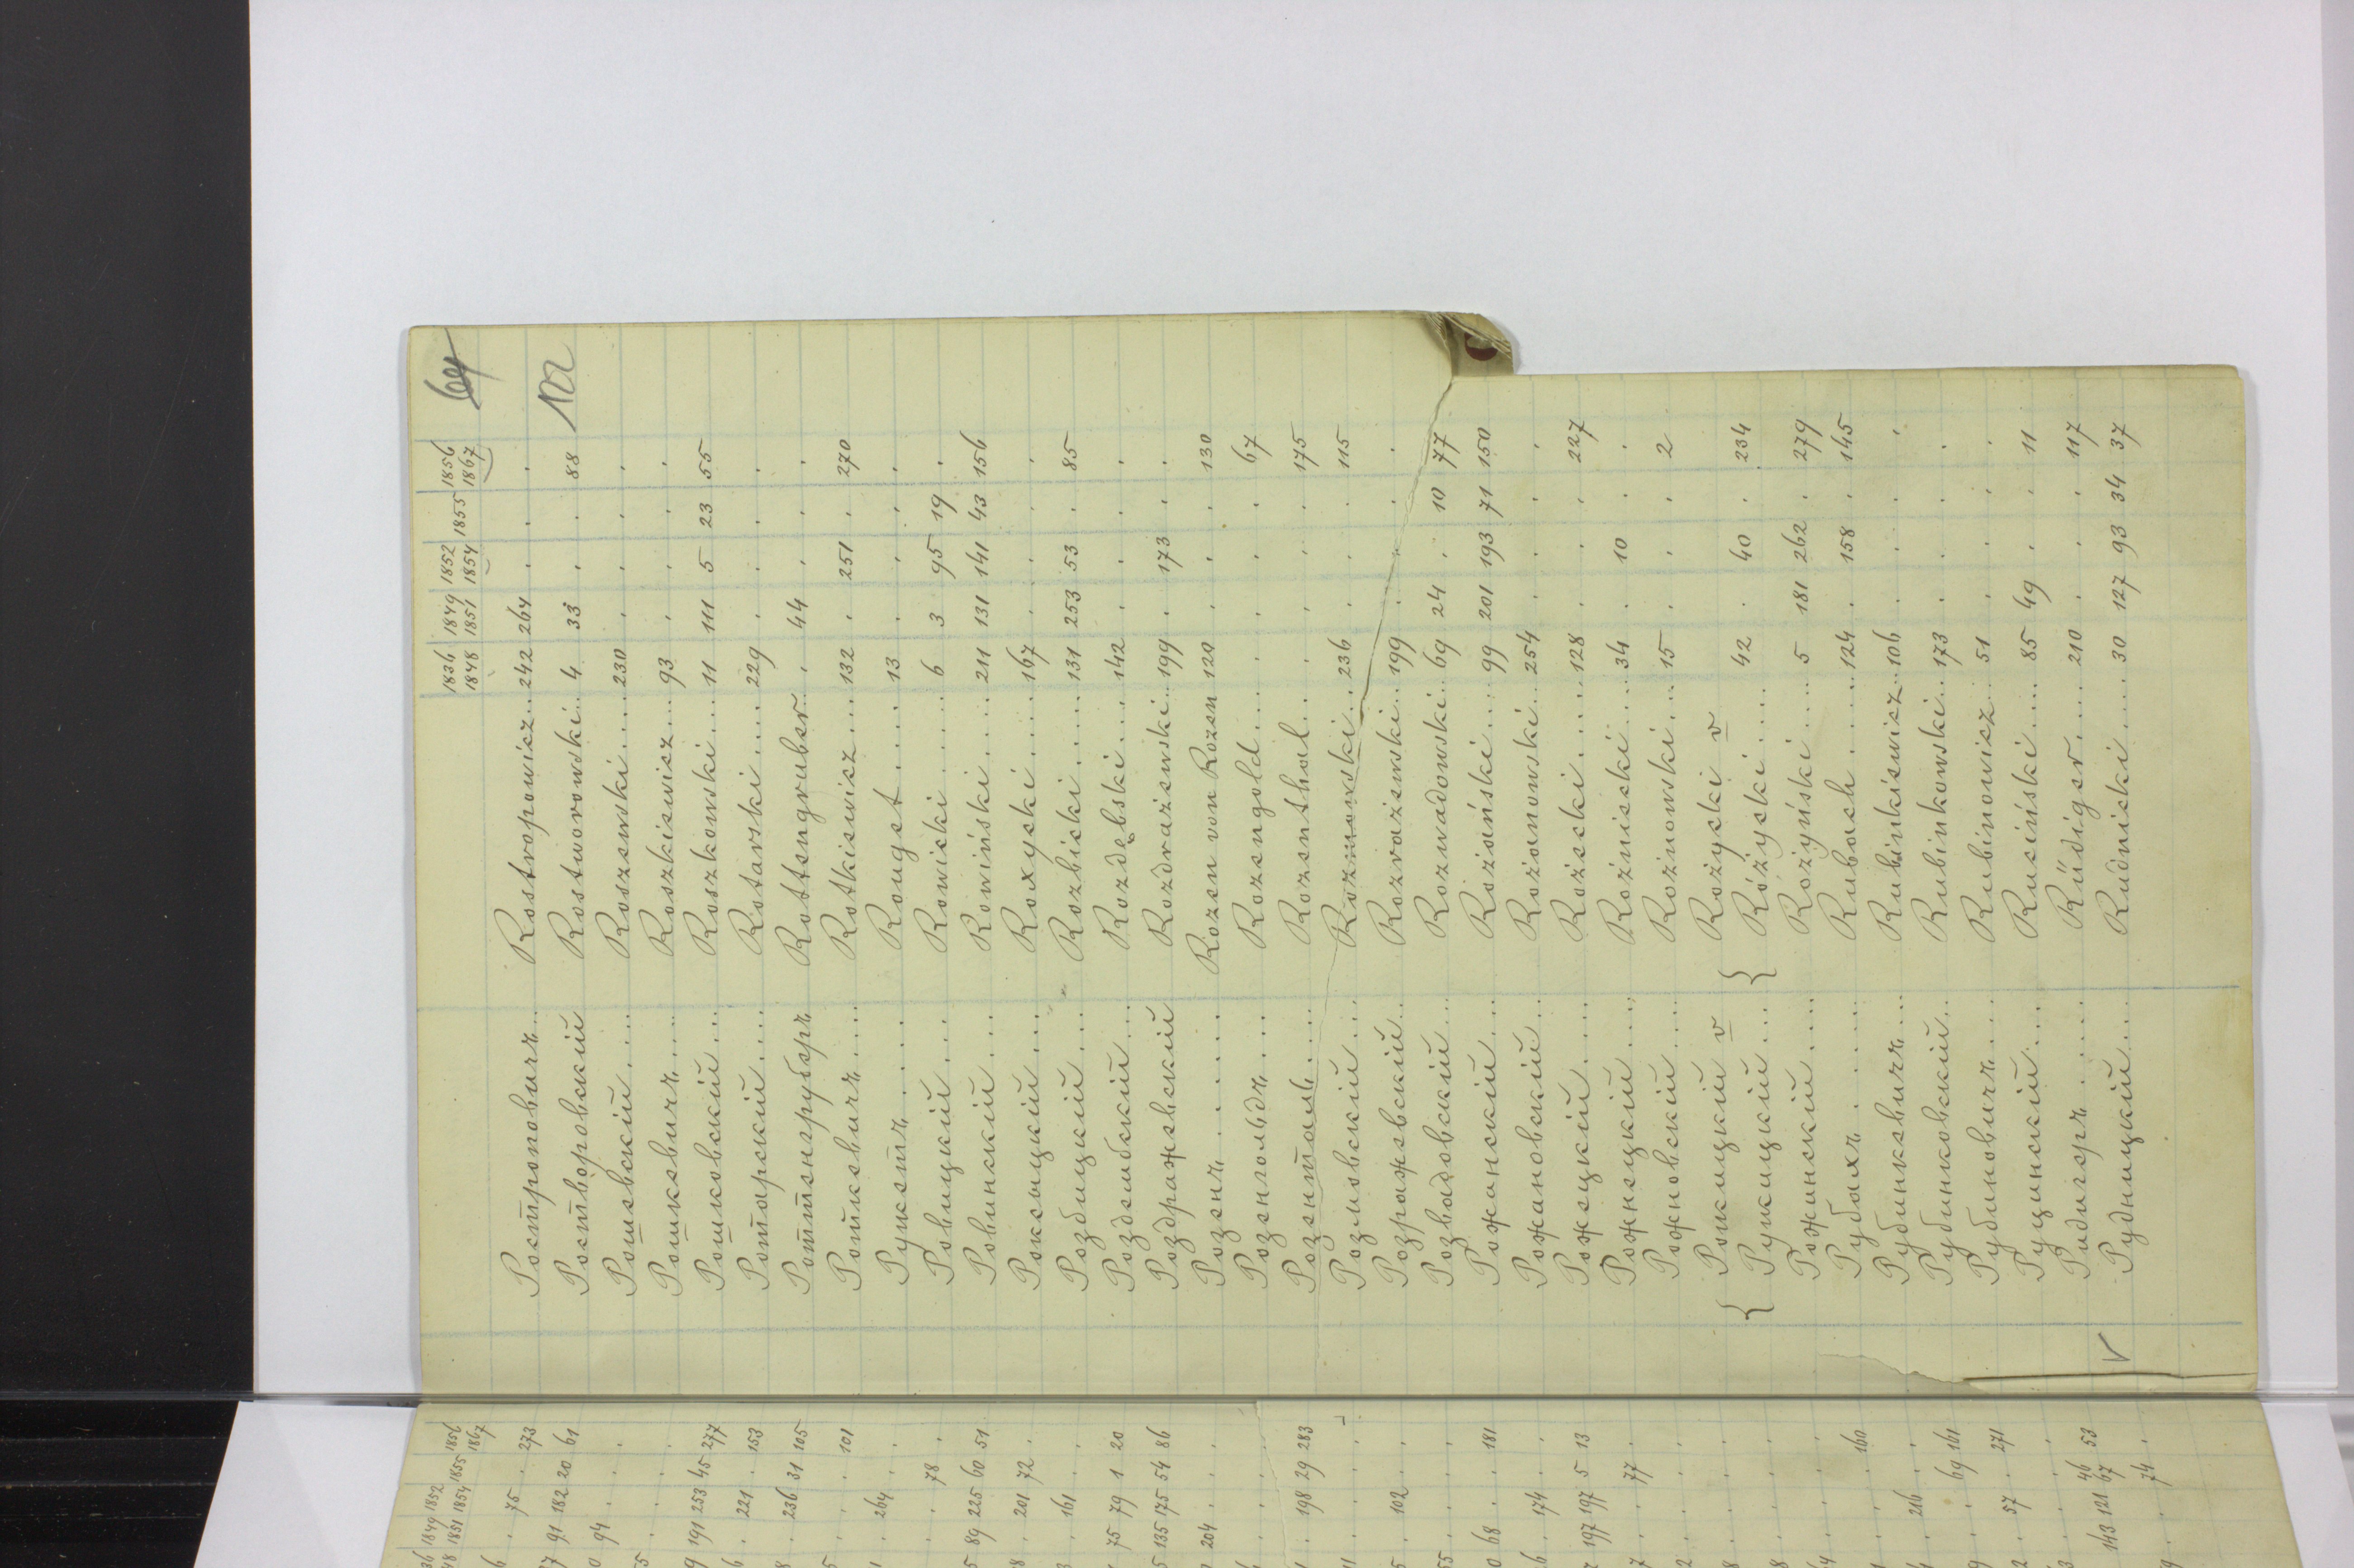 1836 1849 1852 1855 1856 64
1848 1851 1854 1867
122
Ростроповичъ... Rostropowicz.. 242 264 . . .
Роствѣоровский Rostworowski.. 4 33 . . 88
Рошевскій..... Roszewski..... 230 . . . .
Рошкевичъ.... Roszkiewicz.... 93 . . . .
Рошковскій.... Roszkowski.... 11 111 5 23 55
Ротарскій.... Rotarski.... 229 . . . .
Роттенгруберъ Rottengruber.. . 44 . . .
Роткевичъ.... Rotkiewicz.... 132 . 251 . 270
Ружетъ..... Rouget..... 13 . . . .
Ровицкій.... Rowicki..... 6 3 95 19 .
Ровинскій.... Rowiński..... 211 131 141 43 156
Роксицкій.... Roxycki..... 167 . . . .
Розбицкій.... Rozbicki..... 131 253 53 . 85
Роздембскій... Rozdębski.... 142 . . . .
Роздражевскій Rozdrażewski.. 199 . 173 . .
Розенъ...... Rozen von Rozen 120 . . . 130
Розенгольдъ.... Rozengold.... . . . . 67
Розенталь..... Rozenthal... . . . . 175
Розмовскій.... Rozmowski... 236 . . . 115
Розражевскій.. Rozrażewski.. 199 . . . .
Розвадовскій... Rozwadowski.. 69 24 . 10 77
Рожанскій.... Rożański.... 99 201 193 71 150
Рожановскій... Rożanowski... 254 . . . .
Рожецкій..... Rożecki..... 128 . . . 227
Рожнецкій.... Rożniecki.... 34 . 10 . .
Рожновскій.... Rożnowski... 15 . . . 2
{ Рожицкій v { Rożycki v
Ружицкій.... Różycki..... 42 . 40 . 234
Рожинскій.... Rożyński..... 5 181 262 . 279
Рубахъ...... Rubach..... 124 . 158 . 145
Рубинкевичъ... Rubinkiewicz.. 106 . . . .
Рубинковскій.. Rubinkowski.. 173 . . . .
Рубиновичъ.... Rubinowicz... 51 . . . .
Руцинскій.... Ruciński..... 85 49 . . 11
Ридигеръ..... Rüdiger..... 210 . . . 117
V Рудницкій.... Rudnicki..... 30 127 93 34 37
1849 1852 1855 1856
1851 1854 1867
. 75 . 273
91 182 20 61
94 . . .
. . . .
191 253 45 277
. 221 . 153
. 236 31 105
. . . 101
. 264 . .
. . 78 .
89 225 60 51
. 201 72 .
. 161 . .
75 79 1 20
135 175 54 86
204 . . .
. . . .
. 198 29 283
. . . .
. 102 . .
. . . .
68 . . 181
. 174 . .
197 197 5 13
. . 77 .
. . . .
. . . .
. . . .
. . . .
. . . 160
. 216 . .
. . 69 161
. 57 . 271
. . . .
113 121 46 67 53
. . 74 .